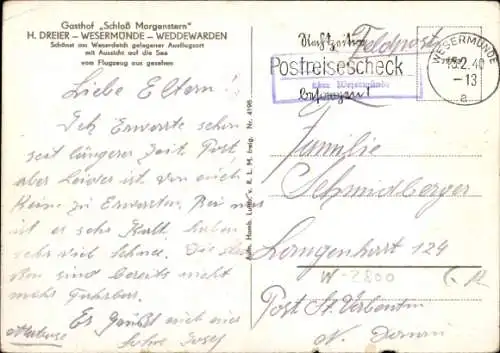 Gasthof „Schloß Morgenstern"
H. DREIER — WESERMÜNDE — WEDDEWARDEN
Schönst am Weserdeich gelegener Ausflugsort
mit Aussicht auf die See
vom Flugzeug aus gesehen
Liebe Eltern!
Ich Erwarte schon
seit längerer Zeit Post,
aber Leider ist von euch
keine zu Erwarten. Bei uns
ist es sehr Kalt, haben
sehr viel Schnee. Die
sind bereits nicht
mehr Fahrbar.
Es Grüßt euch euer
Sohn Josef
Nr. 4196
Feldpost
Postreisescheck
WESERMÜNDE
13.2.40
-13
a
über Wesermünde
Familie
Schmidberger
Langenhart 124
W-2800
Post St. Valentin
N. Donau